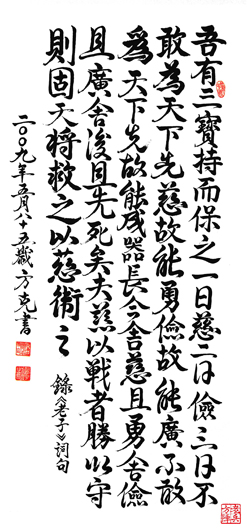 吾有三寶持而保之一曰慈二曰儉三曰不
敢為天下先慈故能勇儉故能廣不敢
為天下先故能成器長今舍慈且勇舍儉
且廣舍後且先死矣夫慈以戰者勝以守
則固天將救之以慈衛之
錄《老子》詞句
二〇〇九年五月八十五歲方克書